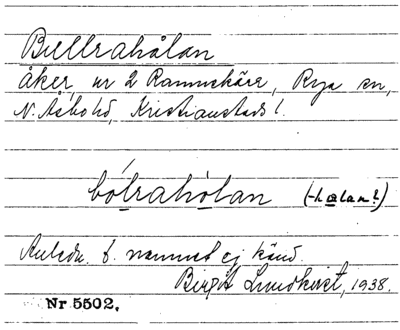 Bullrahålan
åker, nr 2 Rammskärr, Rya sn,
N. Åsbo hd, Kristianstads l.
bólrahòlan (-halan?)
Anledn. t. namnet ej känd.
Birgit Lundkvist, 1938.
Nr 5502.